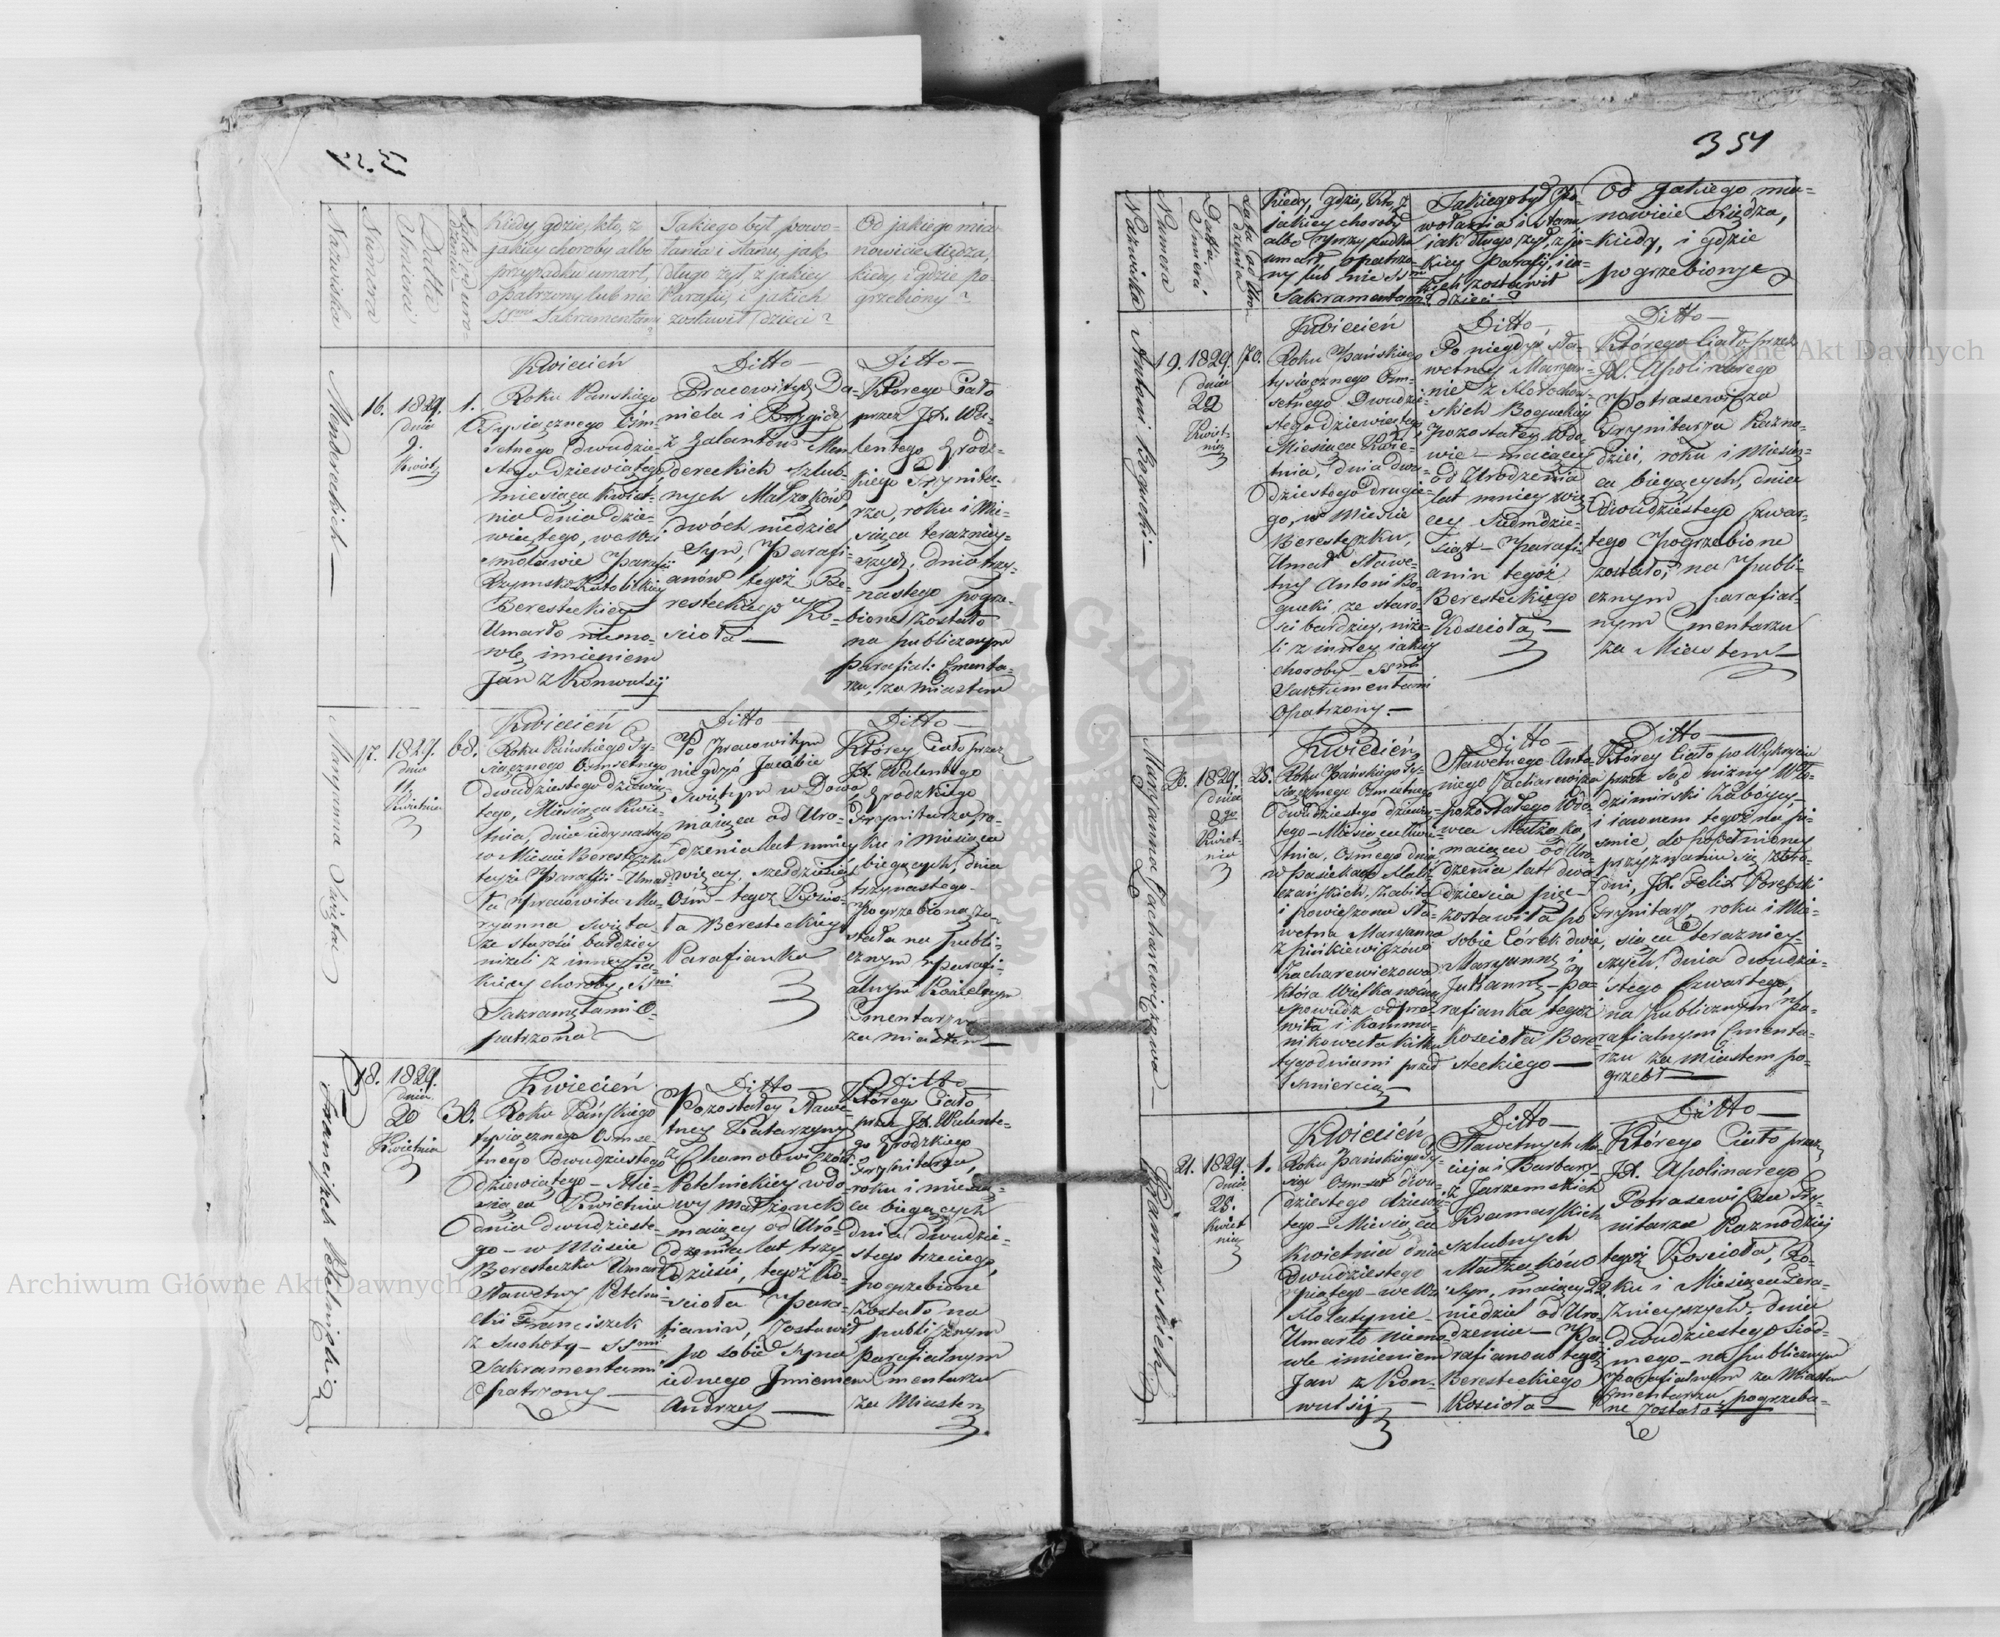 354
Nazwiska
Numera
Datta
Śmierci
Lata od uro-
dzenia
Kiedy gdzie, kto, z
jakiey choroby albo
przypadku umarł,
opatrzony lub nie
SSmi Sakramentami
Jakiego był powo-
łania i stanu, jak
długo żył z jakiey
Parafii, i jakich
zostawił dzieci?
Od jakiego mia-
nowicie Xiędza,
kiedy i gdzie po-
grzebiony?
Mendereckich
16.
1829.
dnia
9.
Kwiet.
1.
Kwiecień
Roku Pańskiego
Tysiącznego Ośm-
setnego dwudzie-
stego dziewiątego
miesiąca Kwiet-
nia dnia dzie-
wiątego, we wsi
Smolawie Parafii
Rzymsko Katolickiey
Beresteckiey
Umarło niemo-
wlę imieniem
Jan z Konwulsij
Ditto
Pracowitych Da-
niela i Brygidy
z Galantów Men-
dereckich szlub-
nych Małżaków,
dwóch niedziel
Syn, Parafi-
anów tegoż Be-
resteckiego Ko-
ścioła
Ditto
Którego Ciało
przez JX. Wa-
lentego Grodz-
kiego Trynita-
rza, roku i Mie-
siąca teraźniey-
szych, dnia trzy-
nastego pogrze-
bione zostało
na publicznym
parafial: Cmenta-
rzu, za Miastem
Maryanna Święta
17.
1829.
dnia
11
Kwietnia
68.
Kwiecień
Roku Pańskiego Ty-
siącznego Osmsetnego
dwudziestego dziewią-
tego, Miesiąca Kwie-
tnia, dnia iedynastego
w Mieście Beresteczku
teyże Parafii Umar-
ła pracowita Ma-
ryanna Święta
ze starości bardziey
niżeli z inney ia-
kiey choroby, SSmi
Sakramentami O-
patrzona
Ditto
Po pracowitym
niegdyś Jacobie
Świętym w Dowa
maiąca od Uro-
dzenia lat mniey
więcey, sześdziesiąt
Ośm - tegoż Kościo-
ła Beresteckiey
Parafianka
Ditto
Którey Ciało przez
JX. Walentego
Grodzkiego
Trynitarza, ro-
ku i miesiąca
bieżących, dnia
trzynastego
Pogrzebiona zo-
stała na publi-
cznym parafi-
alnym Kościelnym
Cmentarzu
za miastem
Franciszek Petelnicki
18.
1829.
dnia
20
Kwietnia
30.
Kwiecień
Roku Pańskiego
tysiącznego Osmse-
tnego Dwudziestego
dziewiątego - Mie-
siąca Kwietnia
dnia dwudzieste-
go - w Mieście
Beresteczku Umarł
Sławetny Petelni-
cki Franciszek
z Suchoty - SSmi
Sakramentami
Opatrzony
Ditto
Pozostałey Sławe-
tney Katarzyny
z Chamołowiczów
Petelnickiey wdo-
wy małżonek
maiący od Uro-
dzenia lat trzy-
dzieści, tegoż Ko-
ścioła Para-
fianin, Zostawił
po sobie Syna
iednego Jmieniem
Andrzey
Ditto
Którego Ciało
przez JX. Walente-
go Grodzkiego
Trynitarza,
roku i miesią-
ca bieżących
dnia dwudzie-
stego trzeciego,
pogrzebione
zostało na
publicznym
parafialnym
Cmentarzu
za Miastem
Nazwiska
Numera
Datta
Śmierci
Lata od Uro-
dzenia
Kiedy, gdzie, kto, z
jakiey choroby
albo przypadku
umarł, opatrzo-
ny lub nie SSmi
Sakramentami
Jakiego był Po-
wołania i stanu,
jak długo żył, z ja-
kiey Parafij, i ia-
kich zostawił
dzieci?
Od jakiego mia-
nowicie Xiędza,
kiedy, i gdzie
pogrzebiony
Antoni Bogucki
19.
1829.
dnia
22
Kwiet-
nia
70.
Kwiecień
Roku Pańskiego
tysiącznego Osm-
setnego Dwudzie-
stego dziewiątego
Miesiąca Kwie-
tnia, dnia dwu-
dziestego drugie-
go, w Mieście
Beresteczku,
Umarł Sławe-
tny Antoni Bo-
gucki, ze staro-
ści bardziey, niże-
li z inney iakiey
choroby SSmi
Sakramentami
Opatrzony.
Ditto
Po niegdyś Sła-
wetney Maryan-
nie z
Boguckiey
pozostałey Wdo-
wiec - maiący
od Urodzenia
lat mniey wię-
cey Siedmdzie-
siąt - Parafi-
anin tegoż
Beresteckiego
Kościoła
Ditto
Którego Ciało przez
JX. Apolinarego
Potrasewicza
Trynitarza Kazno-
dziei, roku i Miesią-
ca bieżących, dnia
dwudziestego czwar-
tego pogrzebione
zostało, na Publi-
cznym parafial-
nym Cmentarzu
za Miastem
Maryanna Zacharewiczowa
20.
1829.
dnia
8go
Kwiet-
nia
25.
Kwiecień
Roku Pańskiego Ty-
siącznego Osmsetnego
dwudziestego dziewią-
tego - Miesiąca Kwie-
tnia, Osmego dnia
w Pasiekach
zabita
i powieszona Sła-
wetna Maryanna
z Pińkiewiczów
Zacharewiczowa
która Wielkanocną
spowiedź odpra-
wiła i kommu-
nikowała kilka
tygodniami przed
Śmiercią
Ditto
Sławetnego Anto-
niego Zacharewicza
pozostałego Wdo-
wca Małżonka,
maiąca od Uro-
dzenia latt dwa-
dzieścia pięć
zostawiła po
sobie Córek dwie,
Maryannę i
Juliannę - pa-
rafianka tegoż
Kościoła Bere-
steckiego
Ditto
Którey Ciało po Wykryciu
przez Sąd niżny Wło-
dzimirski Zabóycy
i iawnem tegoż na pi-
śmie, do popełnioney
przyznaniu się zbro-
dni, JX. Felix Porębski
Trynitarz, roku i Mie-
siąca teraźniey-
szych, dnia dwudzie-
stego czwartego,
na publicznym Pa-
rafialnym Cmenta-
rzu za Miastem po-
grzebł
Kramarskich
21.
1829.
dnia
25.
Kwiet
nia
1.
Kwiecień
Roku Pańskiego Ty-
siąc Osmset dwu-
dziestego dziewią-
tego - Miesiąca
Kwietnia dnia
Dwudziestego
piątego - we Wsi
Umarło Niemo-
wle imieniem
Jan z Kon-
wulsij
Ditto
Sławetnych Ma-
cieja i Barbary
z Jarzemskich
Kramarskich
szlubnych
Małżaków
Syn, maiący 22
niedziel od Uro-
dzenia - Pa-
rafianów tegoż
Beresteckiego
Kościoła
Ditto
Którego Ciało przez
JX. Apolinarego
Potrasewicza Try-
nitarza Kaznodzieij
tegoż Kościoła, Ro-
ku i Miesiąca Tera-
źnieyszych, dnia
Dwudziestego Siód-
mego - na publicznym
Parafialnym za Miastem
Cmentarzu pogrzeba-
ne zostało.
Archiwum Główne Akt Dawnych
Archiwum Główne Akt Dawnych